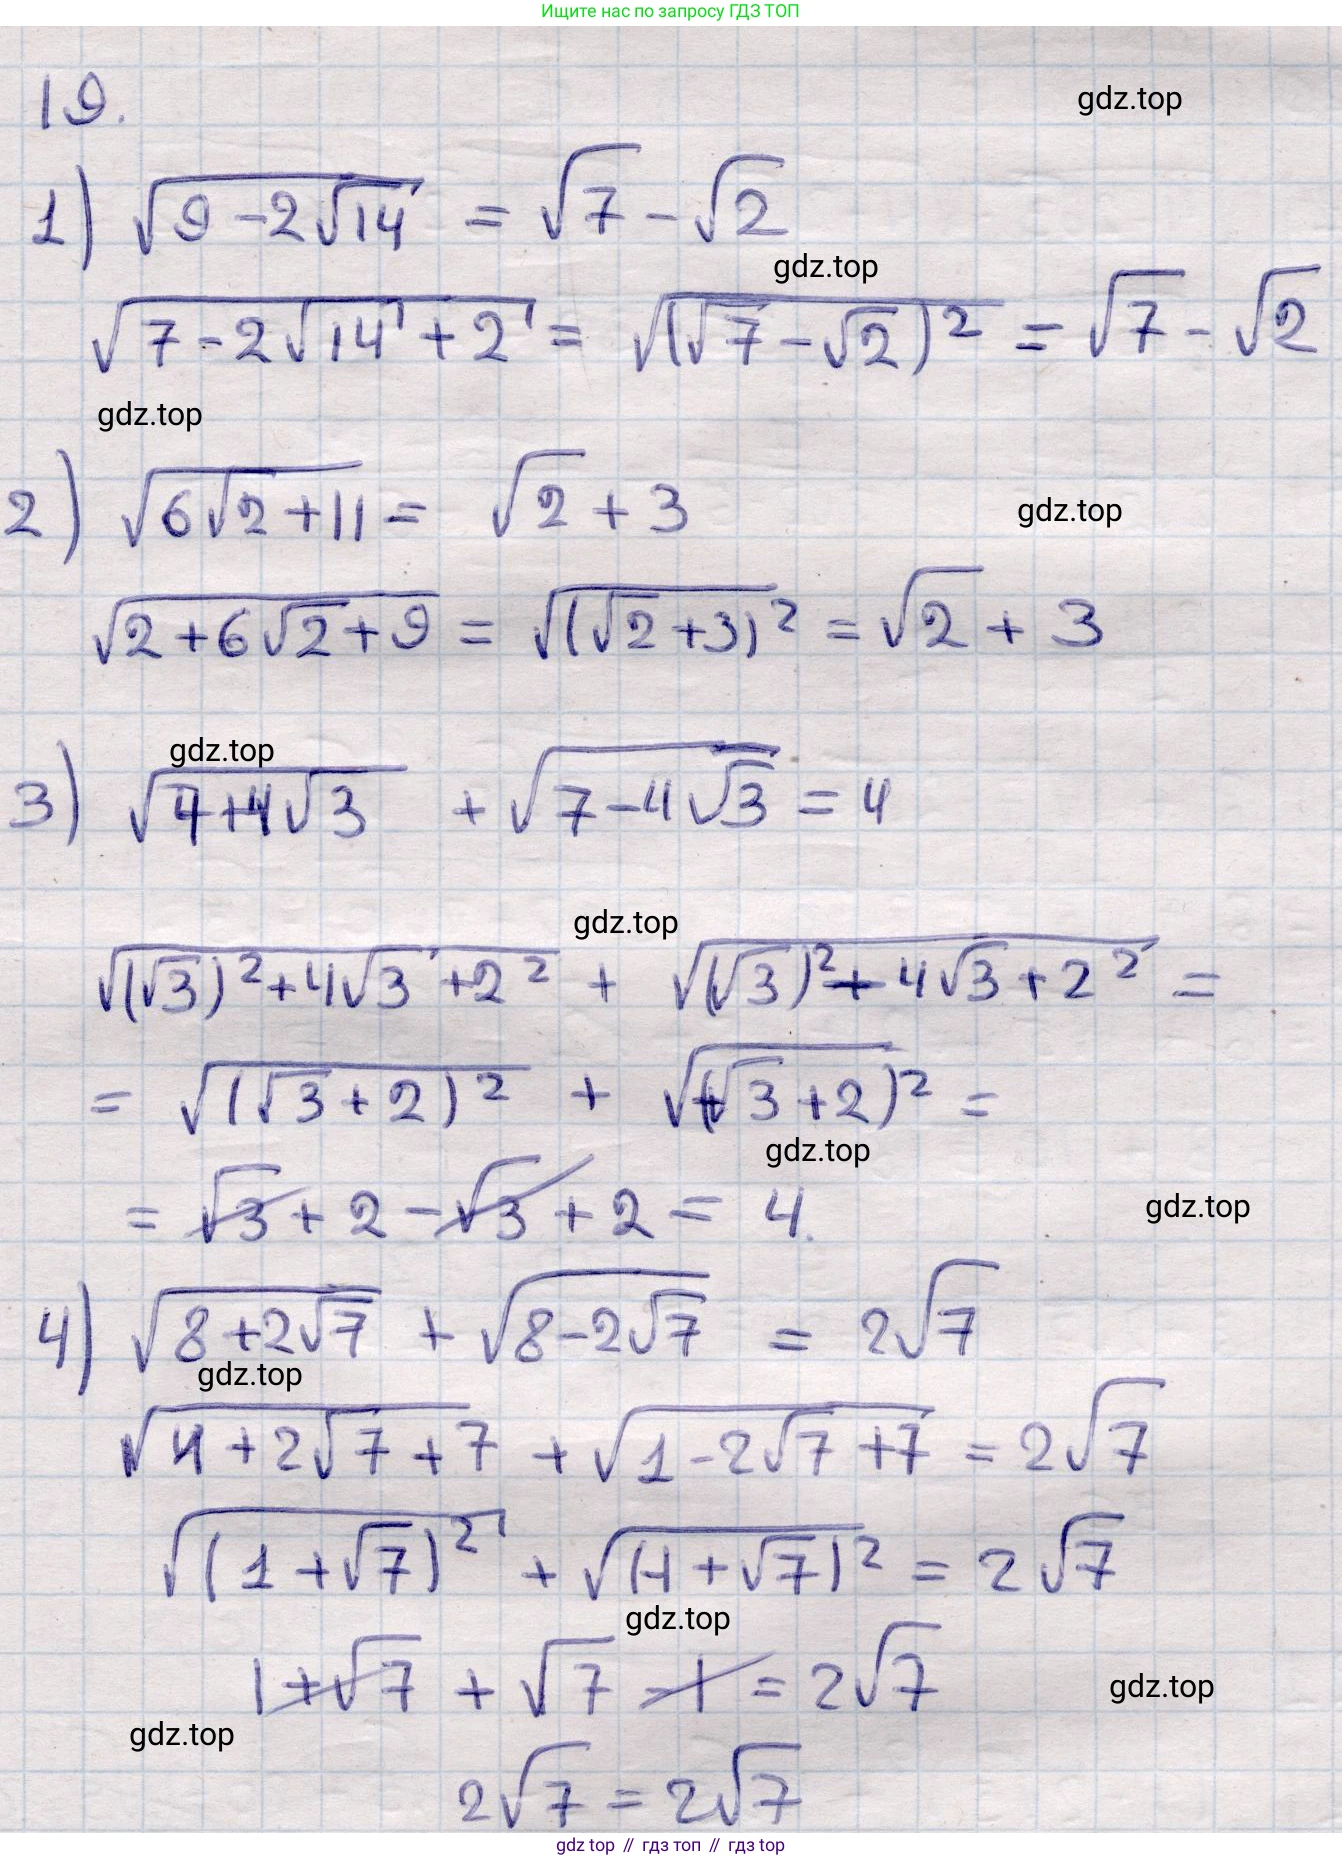 Ищите нас по запросу ГДЗ ТОП
19.
gdz.top
1) √(9-2√14) = √7 - √2
gdz.top
√(7-2√14+2) = √((√7-√2)²) = √7 - √2
gdz.top
2) √(6√2+11) = √2 + 3
gdz.top
√(2+6√2+9) = √((√2+3)²) = √2 + 3
gdz.top
3) √(7+4√3) + √(7-4√3) = 4
gdz.top
√((√3)²+4√3+2²) + √((√3)²+4√3+2²) =
= √((√3+2)²) + √((√3+2)²) =
gdz.top
= √3 + 2 - √3 + 2 = 4.
gdz.top
4) √(8+2√7) + √(8-2√7) = 2√7
gdz.top
√(1+2√7+7) + √(1-2√7+7) = 2√7
√((1+√7)²) + √((-1+√7)²) = 2√7
gdz.top
1+√7 + √7 - 1 = 2√7
gdz.top
gdz.top
2√7 = 2√7
gdz top // гдз топ // гдз top